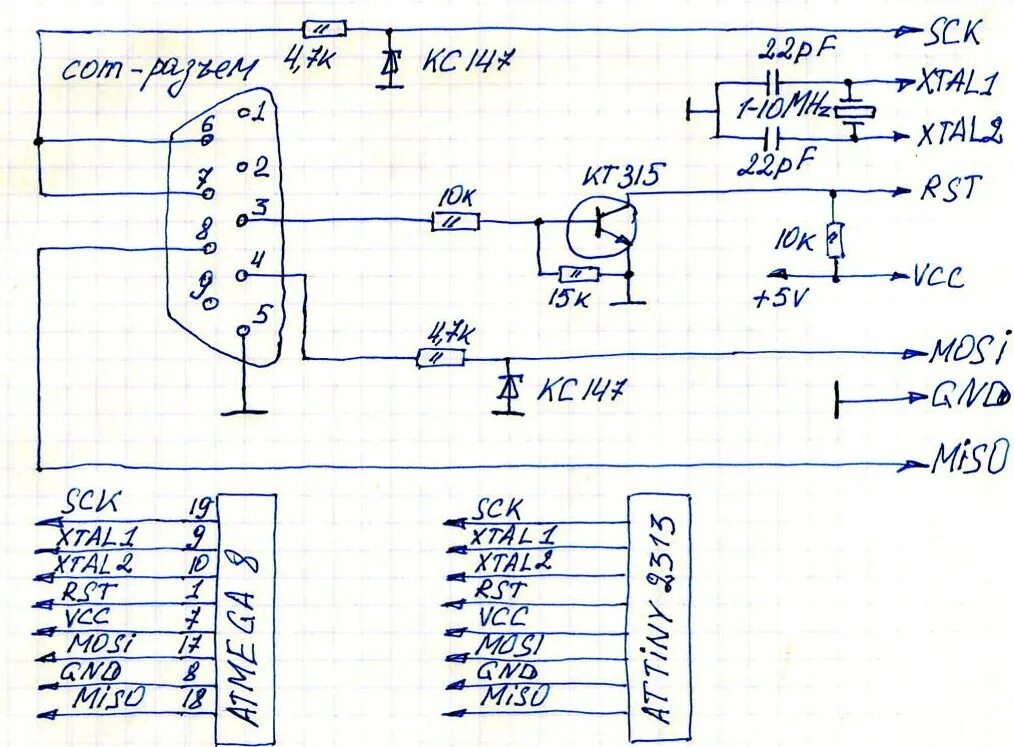 4,7к
КС147
SCK
com-разъем
22pF
XTAL1
1-10MHz
XTAL2
22pF
1
6
2
7
3
8
4
9
5
10к
КТ315
RST
10к
15к
+5V
VCC
4,7к
КС147
MOSi
GND
MiSO
SCK 19
XTAL1 9
XTAL2 10
RST 1
VCC 7
MOSi 17
GND 8
MiSO 18
ATMEGA 8
SCK
XTAL1
XTAL2
RST
VCC
MOSI
GND
MiSO
ATTiNY 2313